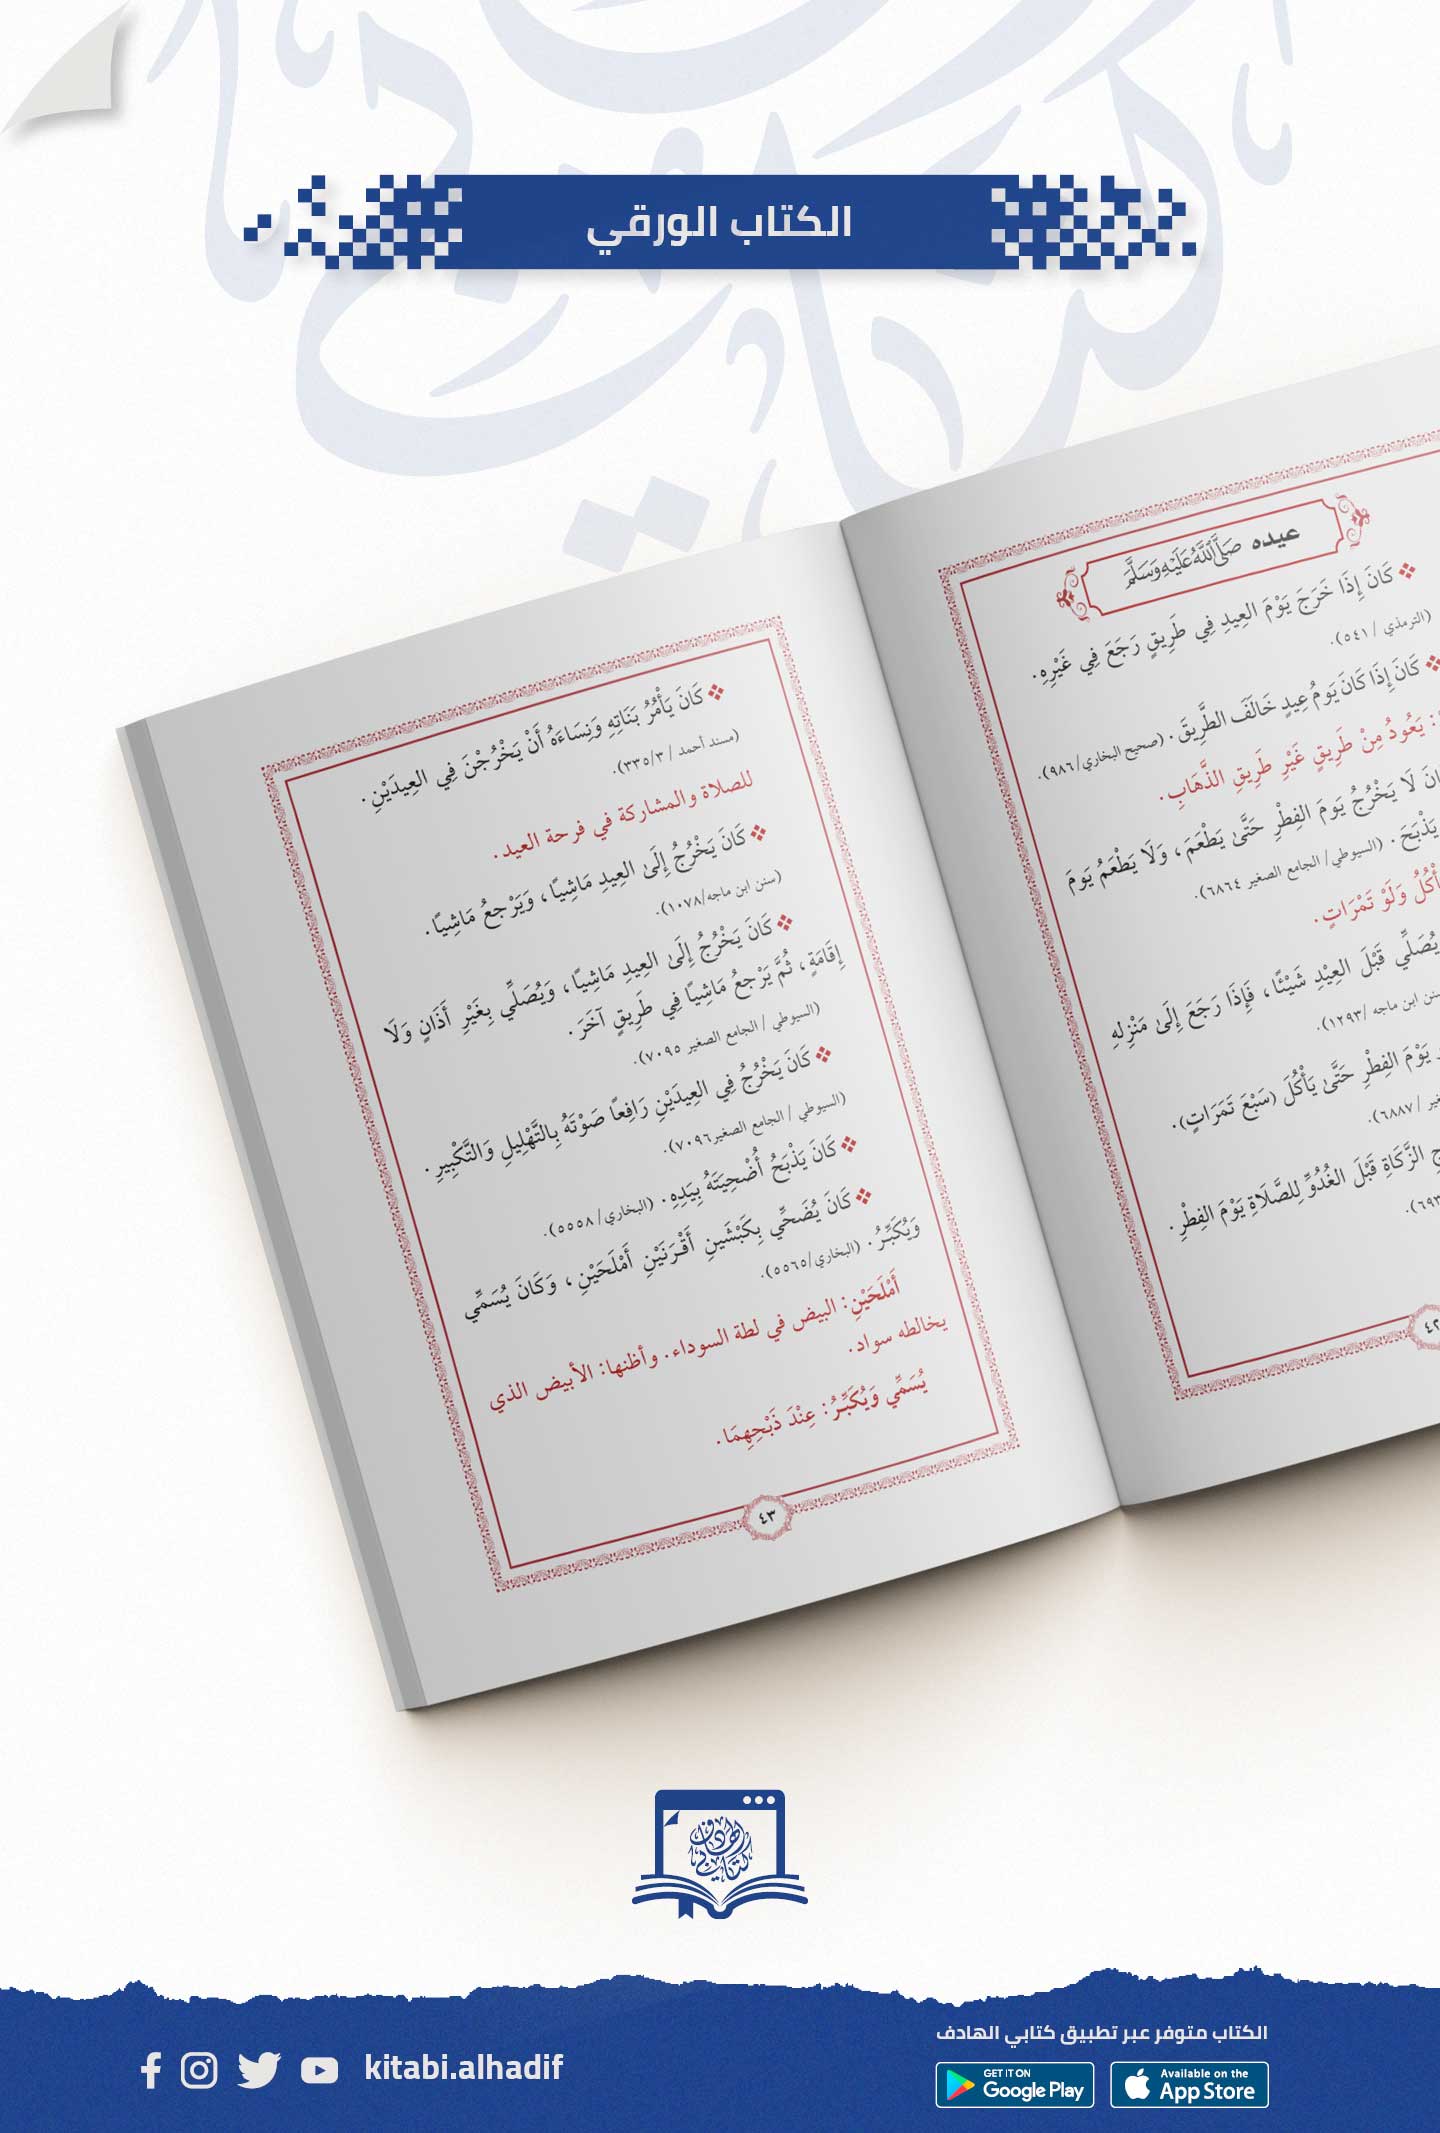 الكتاب الورقي
عيده صَلَّى اللَّهُ عَلَيْهِ وَسَلَّمَ
❖ كَانَ إِذَا خَرَجَ يَوْمَ العِيدِ فِي طَرِيقٍ رَجَعَ فِي غَيْرِهِ.
(الترمذي / ٥٤١).
❖ كَانَ إِذَا كَانَ يَومُ عِيدٍ خَالَفَ الطَّرِيقَ. (صحيح البخاري/ ٩٨٦).
: يَعُودُ مِنْ طَرِيقٍ غَيْرِ طَرِيقِ الذَّهَابِ.
لَا يَخْرُجُ يَومَ الفِطْرِ حَتَّى يَطْعَمَ، وَلَا يَطْعَمُ يَومَ
يَذْبَحَ. (السيوطي/ الجامع الصغير ٦٨٦٤).
وَلَوْ تَمْرَاتٍ.
يُصَلِّي قَبْلَ العِيْدِ شَيْئًا، فَإِذَا رَجَعَ إِلَىٰ مَنْزِلِهِ
ابن ماجه /١٢٩٣).
يَوْمَ الفِطْرِ حَتَّىٰ يَأْكُلَ (سَبْعَ تَمَرَاتٍ).
/ ٦٨٨٧).
الزَّكَاةِ قَبْلَ الغُدُوِّ لِلصَّلَاةِ يَوْمَ الفِطْرِ.
٤٢
❖ كَانَ يَأْمُرُ بَنَاتِهِ وَنِسَاءَهُ أَنْ يَخْرُجْنَ فِي العِيدَيْنِ.
(مسند أحمد / ٣٣٥/٣).
للصلاة والمشاركة في فرحة العيد.
❖ كَانَ يَخْرُجُ إِلَىٰ العِيدِ مَاشِيًا، وَيَرْجِعُ مَاشِيًا.
(سنن ابن ماجه/١٠٧٨).
❖ كَانَ يَخْرُجُ إِلَىٰ العِيدِ مَاشِيًا، وَيُصَلِّي بِغَيْرِ أَذَانٍ وَلَا
إِقَامَةٍ، ثُمَّ يَرْجِعُ مَاشِيًا فِي طَرِيقٍ آخَرَ.
(السيوطي / الجامع الصغير ٧٠٩٥).
❖ كَانَ يَخْرُجُ فِي العِيدَيْنِ رَافِعًا صَوْتَهُ بِالتَّهْلِيلِ وَالتَّكْبِيرِ.
(السيوطي / الجامع الصغير٧٠٩٦).
❖ كَانَ يَذْبَحُ أُضْحِيَتَهُ بِيَدِهِ. (البخاري/ ٥٥٥٨).
❖ كَانَ يُضَحِّي بِكَبْشَينِ أَقْرَنَيْنِ أَمْلَحَيْنِ، وَكَانَ يُسَمِّي
وَيُكَبِّرُ. (البخاري/٥٥٦٥).
أَمْلَحَيْنِ: البيض في لطة السوداء. وأظنها: الأبيض الذي
يخالطه سواد.
يُسَمِّي وَيُكَبِّرُ: عِنْدَ ذَبْحِهِمَا.
٤٣
كتابي الهادف
الكتاب متوفر عبر تطبيق كتابي الهادف
kitabi.alhadif
GET IT ON
Google Play
Available on the
App Store